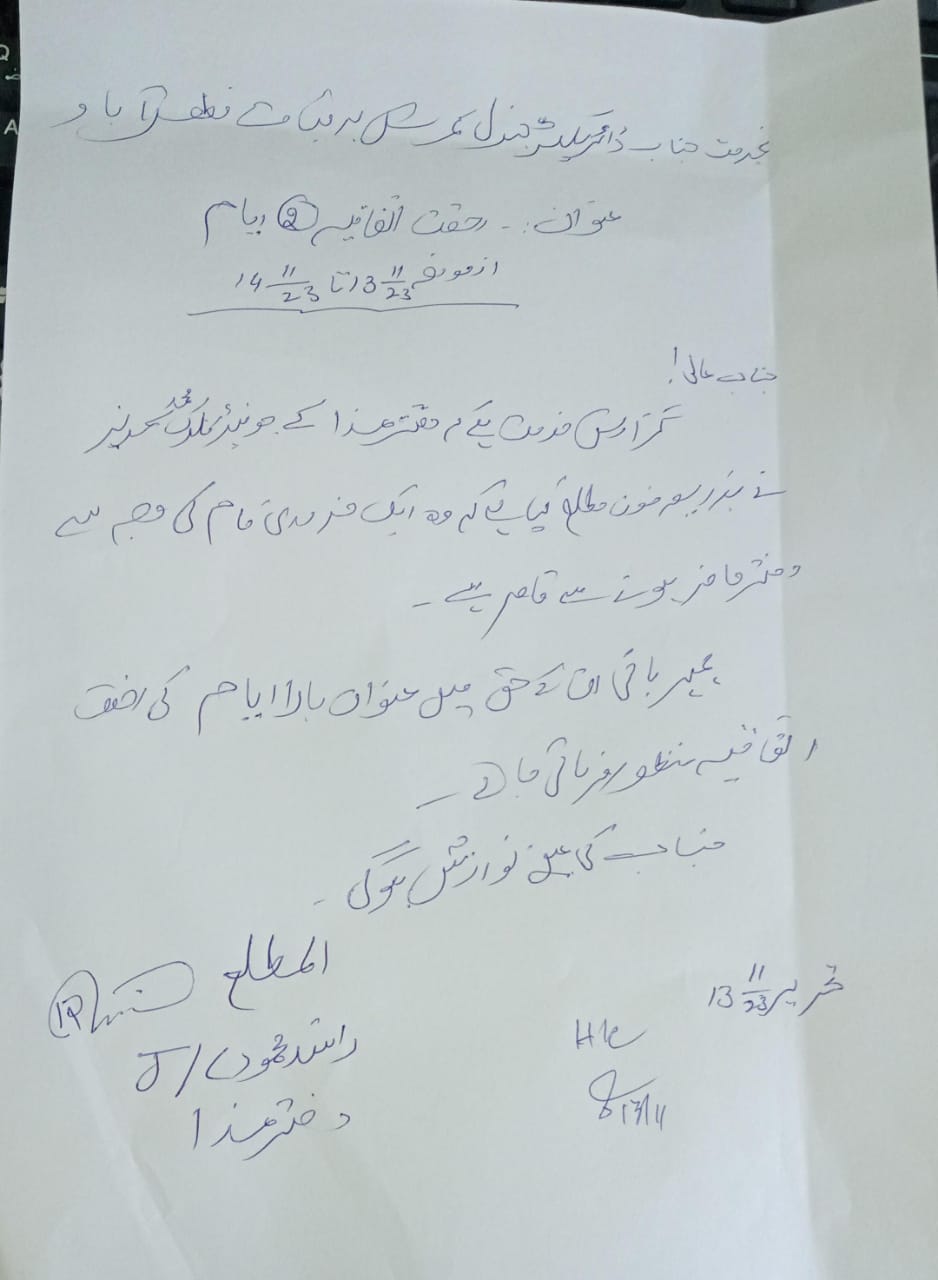 بخدمت جناب ڈائریکٹر جنرل مظفرآباد
عنوان:۔ رخصت اتفاقیہ 2 ایام
از مورخہ 13 11/23 تا 14 11/23
جناب عالی!
گزارش خدمت ہے کہ دفتر ھذا کے جونیئر کلرک محمد
نے بذریعہ فون مطلع کیا ہے کہ وہ ایک ضروری کام کی وجہ سے
دفتر حاضر ہونے سے قاصر ہے ۔
بمہربانی ان کے حق میں عنوان بالا ایام کی رخصت
اتفاقیہ منظور فرمائی جائے ۔
جناب کی عین نوازش ہوگی ۔
المطلع
تحریر 13 11/23
راشد محمود /
H/C
دفتر ھذا
13/11